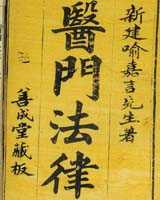 新建喻嘉言先生著
醫門法律
善成堂藏板